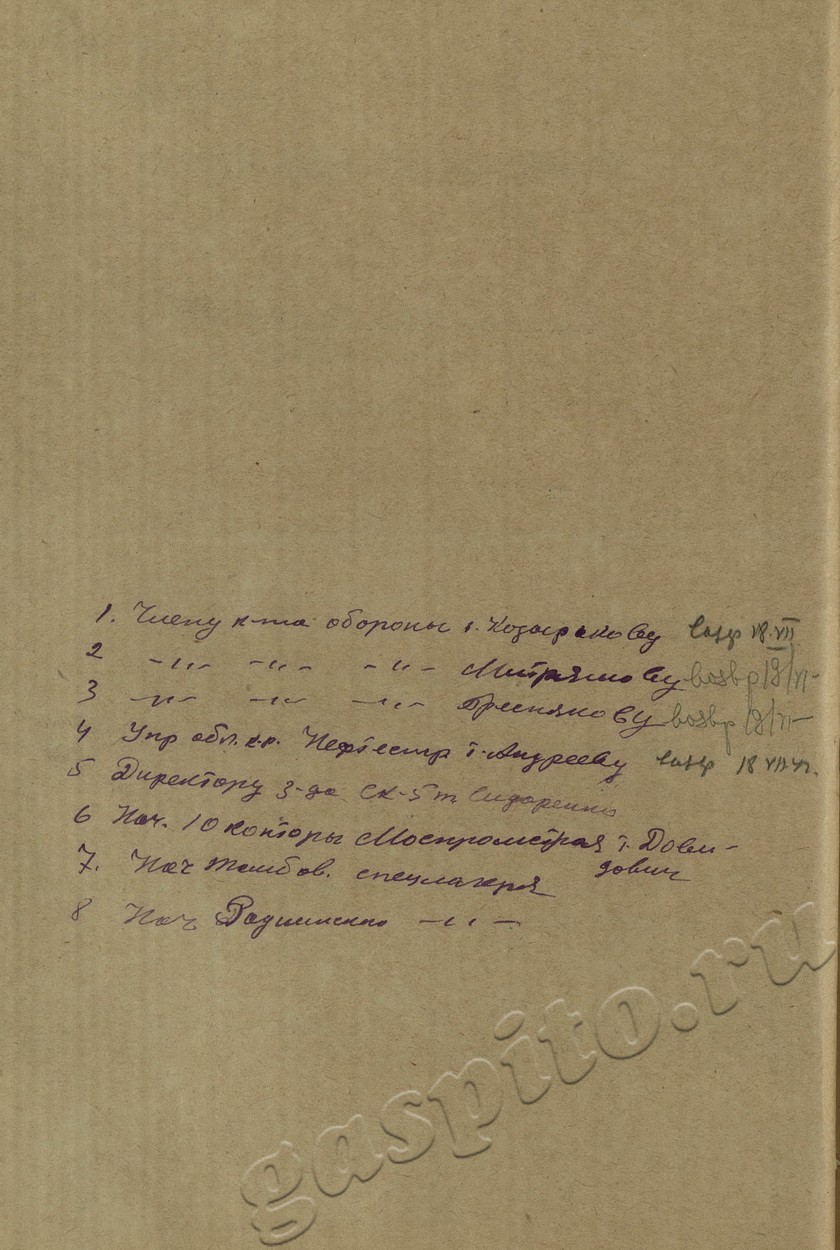 1. Члену к-та обороны т. Козырькову возвр 18.VII
2 -"- -"- -"- Митрякову возвр 18/VI-
3 -"- -"- -"- Греснякову возвр 18/VI-
4 Упр обл. к.к. Нефтесбыт т. Андрееву возвр 18 VII
5 Директору з-да СК-5 т. Сидоренко
6 Нач. 10 конторы Моспромстроя т. Дови-
дович
7. Нач Тамбов. спецлагеря
8 Нач Радинского -"-
gaspito.ru